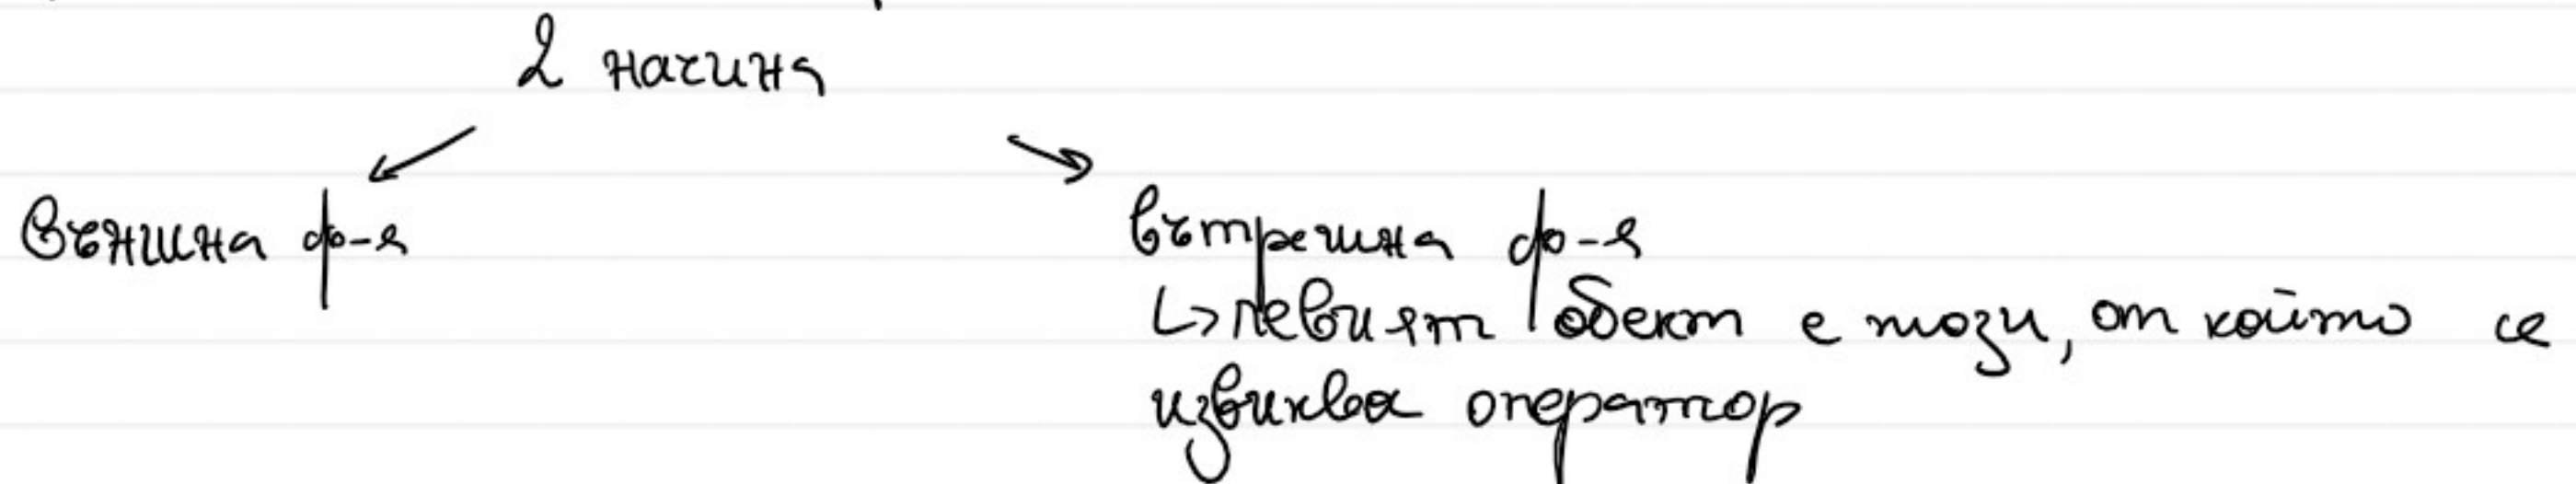 2 начина
Външна ф-я
вътрешна ф-я
↳ левият обект е този, от който се
извиква оператор